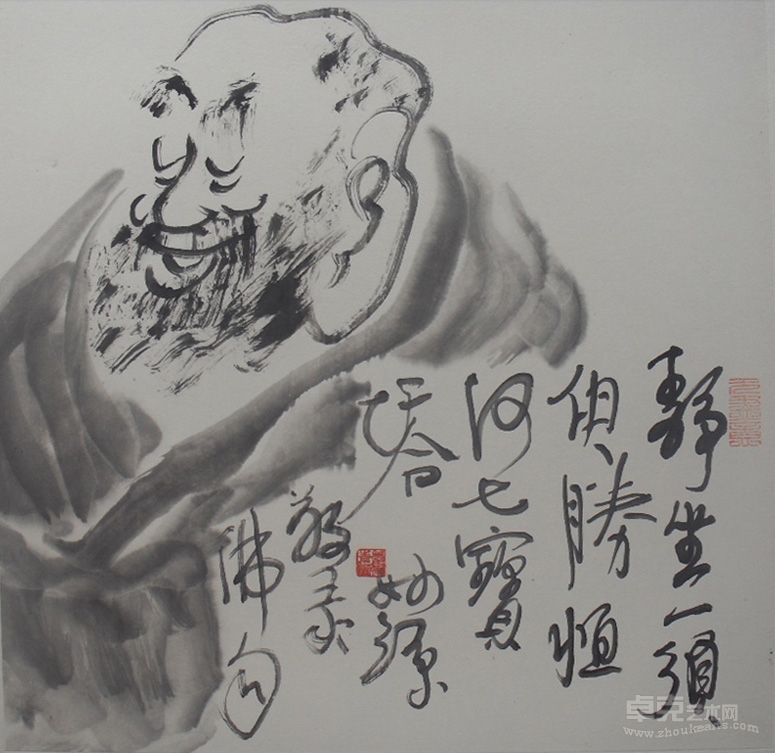 靜坐一須
臾勝恒
河七寶
塔 妙源
敬录
佛句
卓克艺术网
www.zhoukearts.com